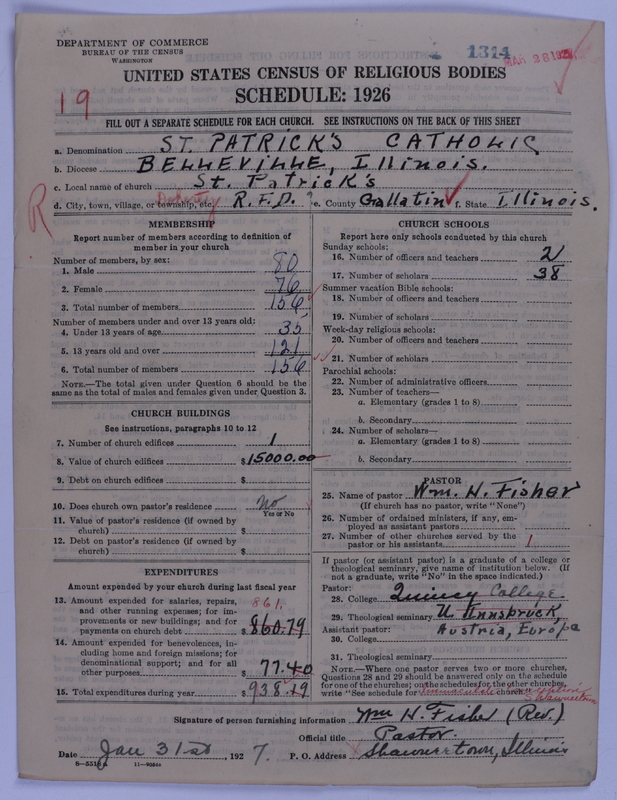 DEPARTMENT OF COMMERCE
BUREAU OF THE CENSUS
WASHINGTON
1314
MAR 28 192
UNITED STATES CENSUS OF RELIGIOUS BODIES
SCHEDULE: 1926
19
FILL OUT A SEPARATE SCHEDULE FOR EACH CHURCH. SEE INSTRUCTIONS ON THE BACK OF THIS SHEET
a. Denomination ST. PATRICK'S CATHOLIC
b. Diocese BELLEVILLE, Illinois.
c. Local name of church St. Patrick's
R
d. City, town, village, or township, etc. R.F.D. e. County Gallatin f. State Illinois.
MEMBERSHIP
Report number of members according to definition of member in your church
Number of members, by sex:
1. Male 80
2. Female 76
3. Total number of members 156
Number of members under and over 13 years old:
4. Under 13 years of age 35
5. 13 years old and over 121
6. Total number of members 156
NOTE.—The total given under Question 6 should be the same as the total of males and females given under Question 3.
CHURCH BUILDINGS
See instructions, paragraphs 10 to 12
7. Number of church edifices 1
8. Value of church edifices $15000.00
9. Debt on church edifices $
10. Does church own pastor's residence No
Yes or No
11. Value of pastor's residence (if owned by church) $
12. Debt on pastor's residence (if owned by church) $
EXPENDITURES
Amount expended by your church during last fiscal year
13. Amount expended for salaries, repairs, and other running expenses; for improvements or new buildings; and for payments on church debt $ 860.79
861.
14. Amount expended for benevolences, including home and foreign missions; for denominational support; and for all other purposes $ 77.40
15. Total expenditures during year $ 938.19
CHURCH SCHOOLS
Report here only schools conducted by this church
Sunday schools:
16. Number of officers and teachers 2
17. Number of scholars 38
Summer vacation Bible schools:
18. Number of officers and teachers
19. Number of scholars
Week-day religious schools:
20. Number of officers and teachers
21. Number of scholars
Parochial schools:
22. Number of administrative officers
23. Number of teachers—
a. Elementary (grades 1 to 8)
b. Secondary
24. Number of scholars—
a. Elementary (grades 1 to 8)
b. Secondary
PASTOR
25. Name of pastor Wm. H. Fisher
(If church has no pastor, write "None")
26. Number of ordained ministers, if any, employed as assistant pastors
27. Number of other churches served by the pastor or his assistants 1.
If pastor (or assistant pastor) is a graduate of a college or theological seminary, give name of institution below. (If not a graduate, write "No" in the space indicated.)
Pastor:
28. College Quincy College
29. Theological seminary U. Innsbruck,
Assistant pastor: Austria, Europa
30. College
31. Theological seminary
NOTE.—Where one pastor serves two or more churches, Questions 28 and 29 should be answered only on the schedule for one of the churches; on the schedules for the other churches, write "See schedule for Immaculate Conception church"
Shawneetown
Signature of person furnishing information Wm H. Fisher (Rev.)
Official title Pastor.
Date Jan 31st, 1927. P. O. Address Shawneetown, Illinois
8—5518 11—9564